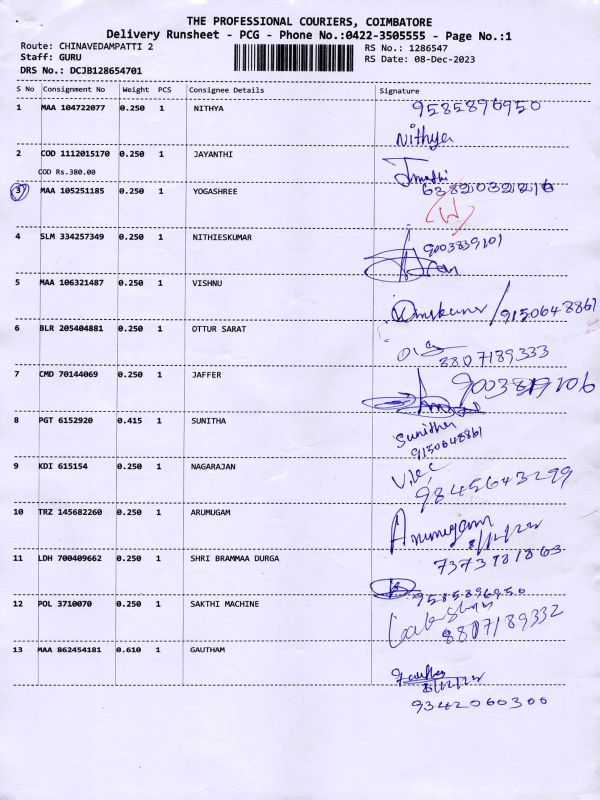 THE PROFESSIONAL COURIERS, COIMBATORE
Delivery Runsheet - PCG - Phone No.:0422-3505555 - Page No.:1
Route: CHINAVEDAMPATTI 2
RS No.: 1286547
Staff: GURU
RS Date: 08-Dec-2023
DRS No.: DCJB128654701
S No Consignment No Weight PCS Consignee Details Signature
1 MAA 104722077 0.250 1 NITHYA 9585896950
Nithya
2 COD 1112015170 0.250 1 JAYANTHI
COD Rs.380.00
3 MAA 105251185 0.250 1 YOGASHREE
4 SLM 334257349 0.250 1 NITHIESKUMAR 9003839101
5 MAA 106321487 0.250 1 VISHNU
/9150648861
6 BLR 205404881 0.250 1 OTTUR SARAT
8807189333
7 CMD 70144069 0.250 1 JAFFER
8 PGT 6152920 0.415 1 SUNITHA Sunitha
9150648861
9 KDI 615154 0.250 1 NAGARAJAN
9845643299
10 TRZ 145682260 0.250 1 ARUMUGAM Arumugam
8/12/22
7373781863
11 LDH 700409662 0.250 1 SHRI BRAMMAA DURGA
9585896950
12 POL 3710070 0.250 1 SAKTHI MACHINE
8807189332
13 MAA 862454181 0.610 1 GAUTHAM
8/12/22
9342060300